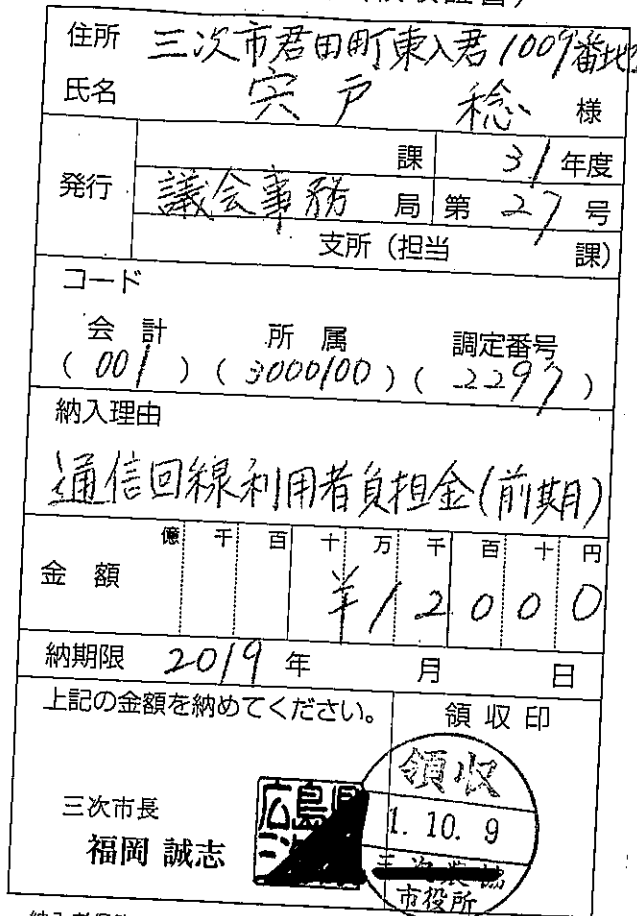 住所 三次市君田町東入君1009番地
氏名 宍戸 稔 様
発行
課 31年度
議会事務局 第27号
支所(担当 課)
コード
会計 所属 調定番号
(001) (3000100) (2297)
納入理由
通信回線利用者負担金(前期)
億 千 百 十 万 千 百 十 円
金額 ¥12000
納期限 2019年 月 日
上記の金額を納めてください。
領収印
三次市長
福岡 誠志
広島県
領収
1. 10. 9
市役所